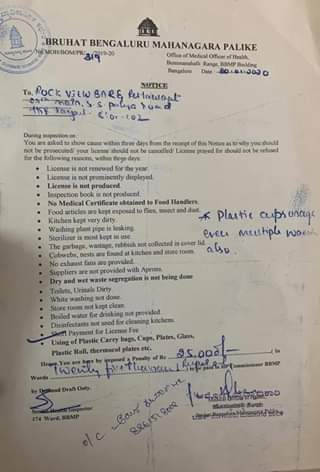 BRUHAT BENGALURU MAHANAGARA PALIKE
319 /2019-20
Office of Medical Officer of Health,
Bommanahalli Range, BBMP Building
Bengaluru Date 20.01.2020
NOTICE
To, ROCK VIEW BAR & Restaurant
S.S. palya road
During inspection on
You are asked to show cause within three days from the receipt of this Notice as to why you should
not be prosecuted/ your license should not be cancelled/ License prayed for should not be refused
for the following reasons, within three days.
• License is not renewed for the year.
• License is not prominently displayed.
• License is not produced.
• Inspection book is not produced.
• No Medical Certificate obtained to Food Handlers.
• Food articles are kept exposed to flies, insect and dust.
• Kitchen kept very dirty.
• Washing plant pipe is leaking.
• Sterilizer is most kept in use
• The garbage, wantage, rubbish not collected in cover lid.
• Cobwebs, nests are found at kitchen and store room.
• No exhaust fans are provided.
• Suppliers are not provided with Aprons.
• Dry and wet waste segregation is not being done
• Toilets, Urinals Dirty
• White washing not done.
• Store room not kept clean.
• Boiled water for drinking not provided.
• Disinfectants not used for cleaning kitchens.
• Short Payment for License Fee
• Using of Plastic Carry bags, Cups, Plates, Glass,
Plastic Roll, thermacol plates etc.
* Plastic cups usage
even multiple
also.
Hence You are here by imposed a Penalty of Rs 25,000/- ( In
Words Twenty five thousand Rupees ) to be paid to the Commissioner BBMP
by Demand Draft Only.
Senior Health Inspector
174 Ward, BBMP
o/c